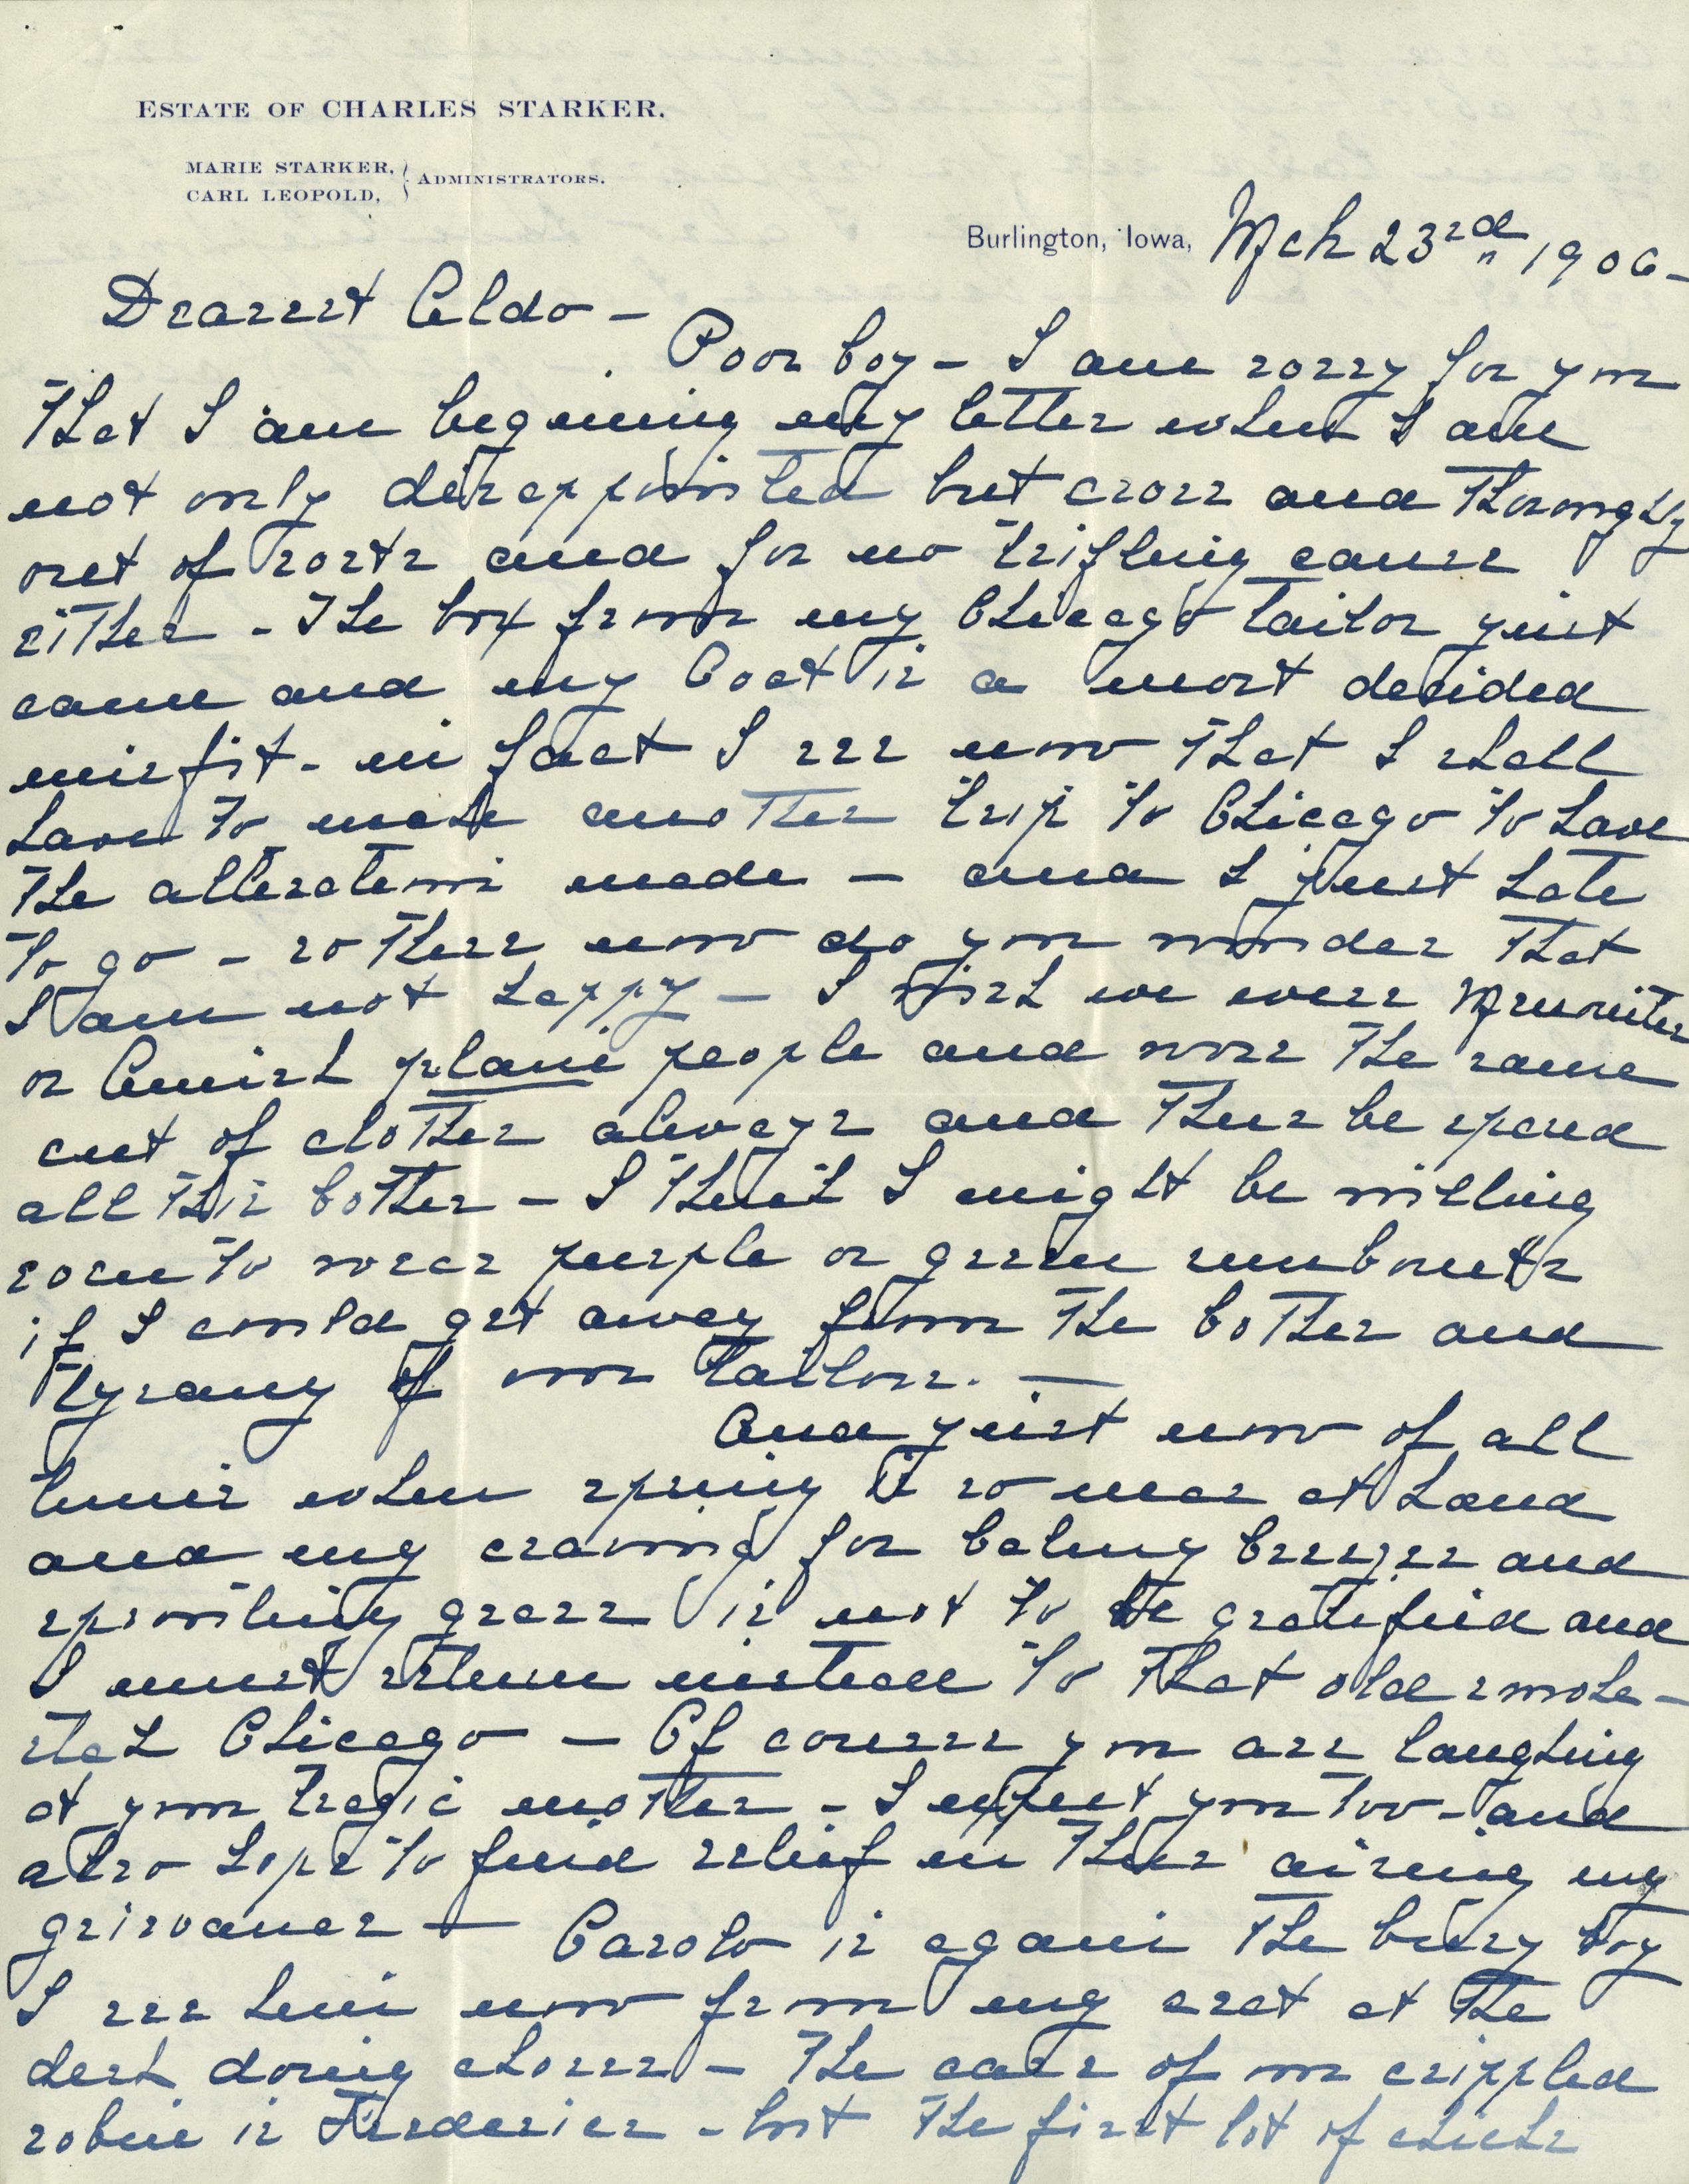 ESTATE OF CHARLES STARKER.
MARIE STARKER, } ADMINISTRATORS.
CARL LEOPOLD,
Burlington, Iowa, Mch 23rd 1906 -
Dearest Aldo -
Poor boy - I am sorry for you
that I am begening my letter when I am
not only disappointed but cross and thoroughly
out of sorts and for no trifling cause
either - The box from my Chicago tailor just
came and my Coat is a most decided
misfit - in fact I see now that I shall
have to make another trip to Chicago to have
the alterations made - and I just hate
to go - so there now do you wonder that
I am not happy - I wish we were Menonites
or Amish plain people and wore the same
cut of clothes always and thus be spared
all this bother - I think I might be willing
soon to wear purple or green sunbonnets
if I could get away from the bother and
tyrany of our tailors. -
And just now of all
times when spring is so near at hand
and my craving for balmy breezes and
sprouting grass is not to be gratified and
I must return instead to that old smoke-
stack Chicago - Of course you are laughing
at your tragic mother - I expect you to - and
also hope to find relief in thus airing my
grievances - Carolo is again the busy boy
I see him now from my seat at the
desk doing chores - The care of our crippled
robin is Frederics - but the first lot of chicks